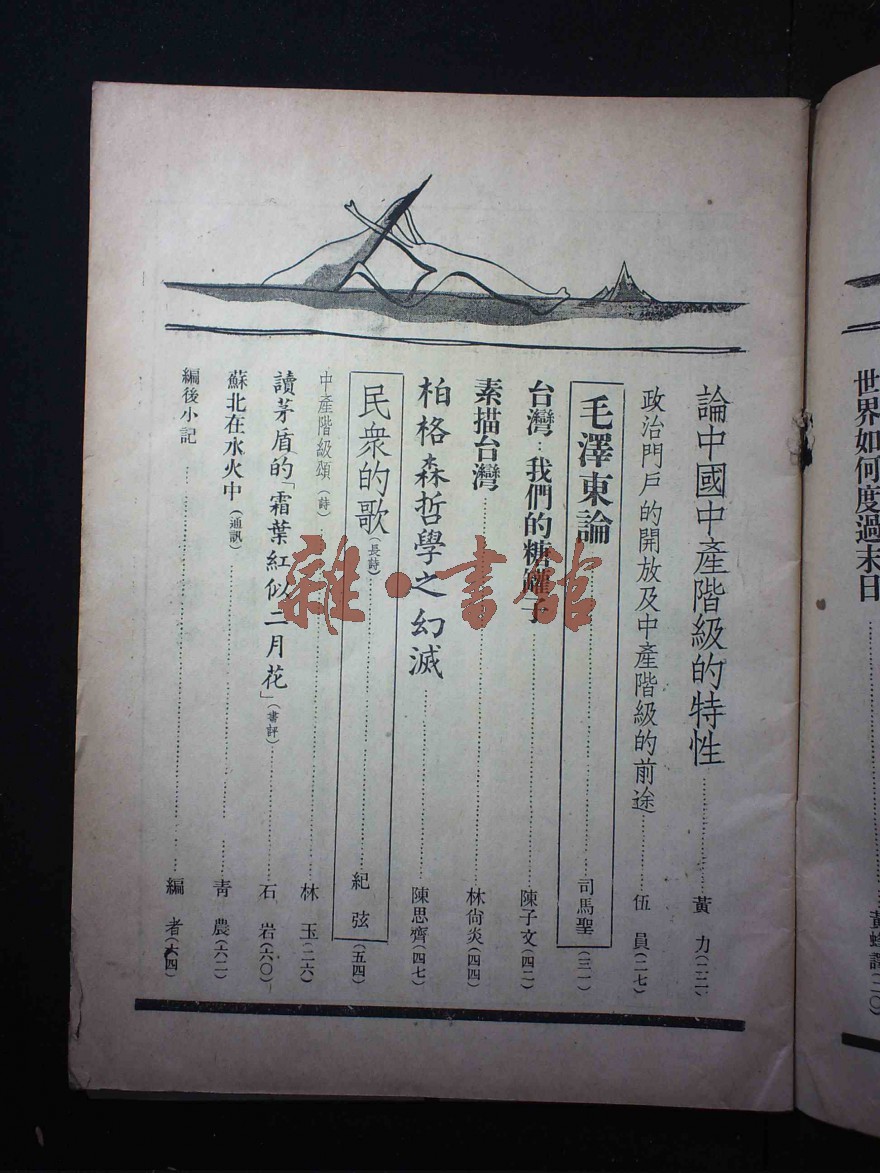 世界如何度過末日……黃蜂譯(二〇)
論中國中產階級的特性……黃 力(二二)
政治門戶的開放及中產階級的前途……伍 員(二七)
毛澤東論……司馬聖(三一)
台灣：我們的糖罐子……陳子文(四二)
素描台灣……林尙炎(四四)
柏格森哲學之幻滅……陳思齊(四七)
民衆的歌(長詩)……紀 弦(五四)
中產階級頌(詩)……林 玉(二六)
讀茅盾的「霜葉紅似二月花」(書評)……石 岩(六〇)
蘇北在水火中(通訊)……靑 農(六二)
編後小記……編 者(六四)
雜·書館